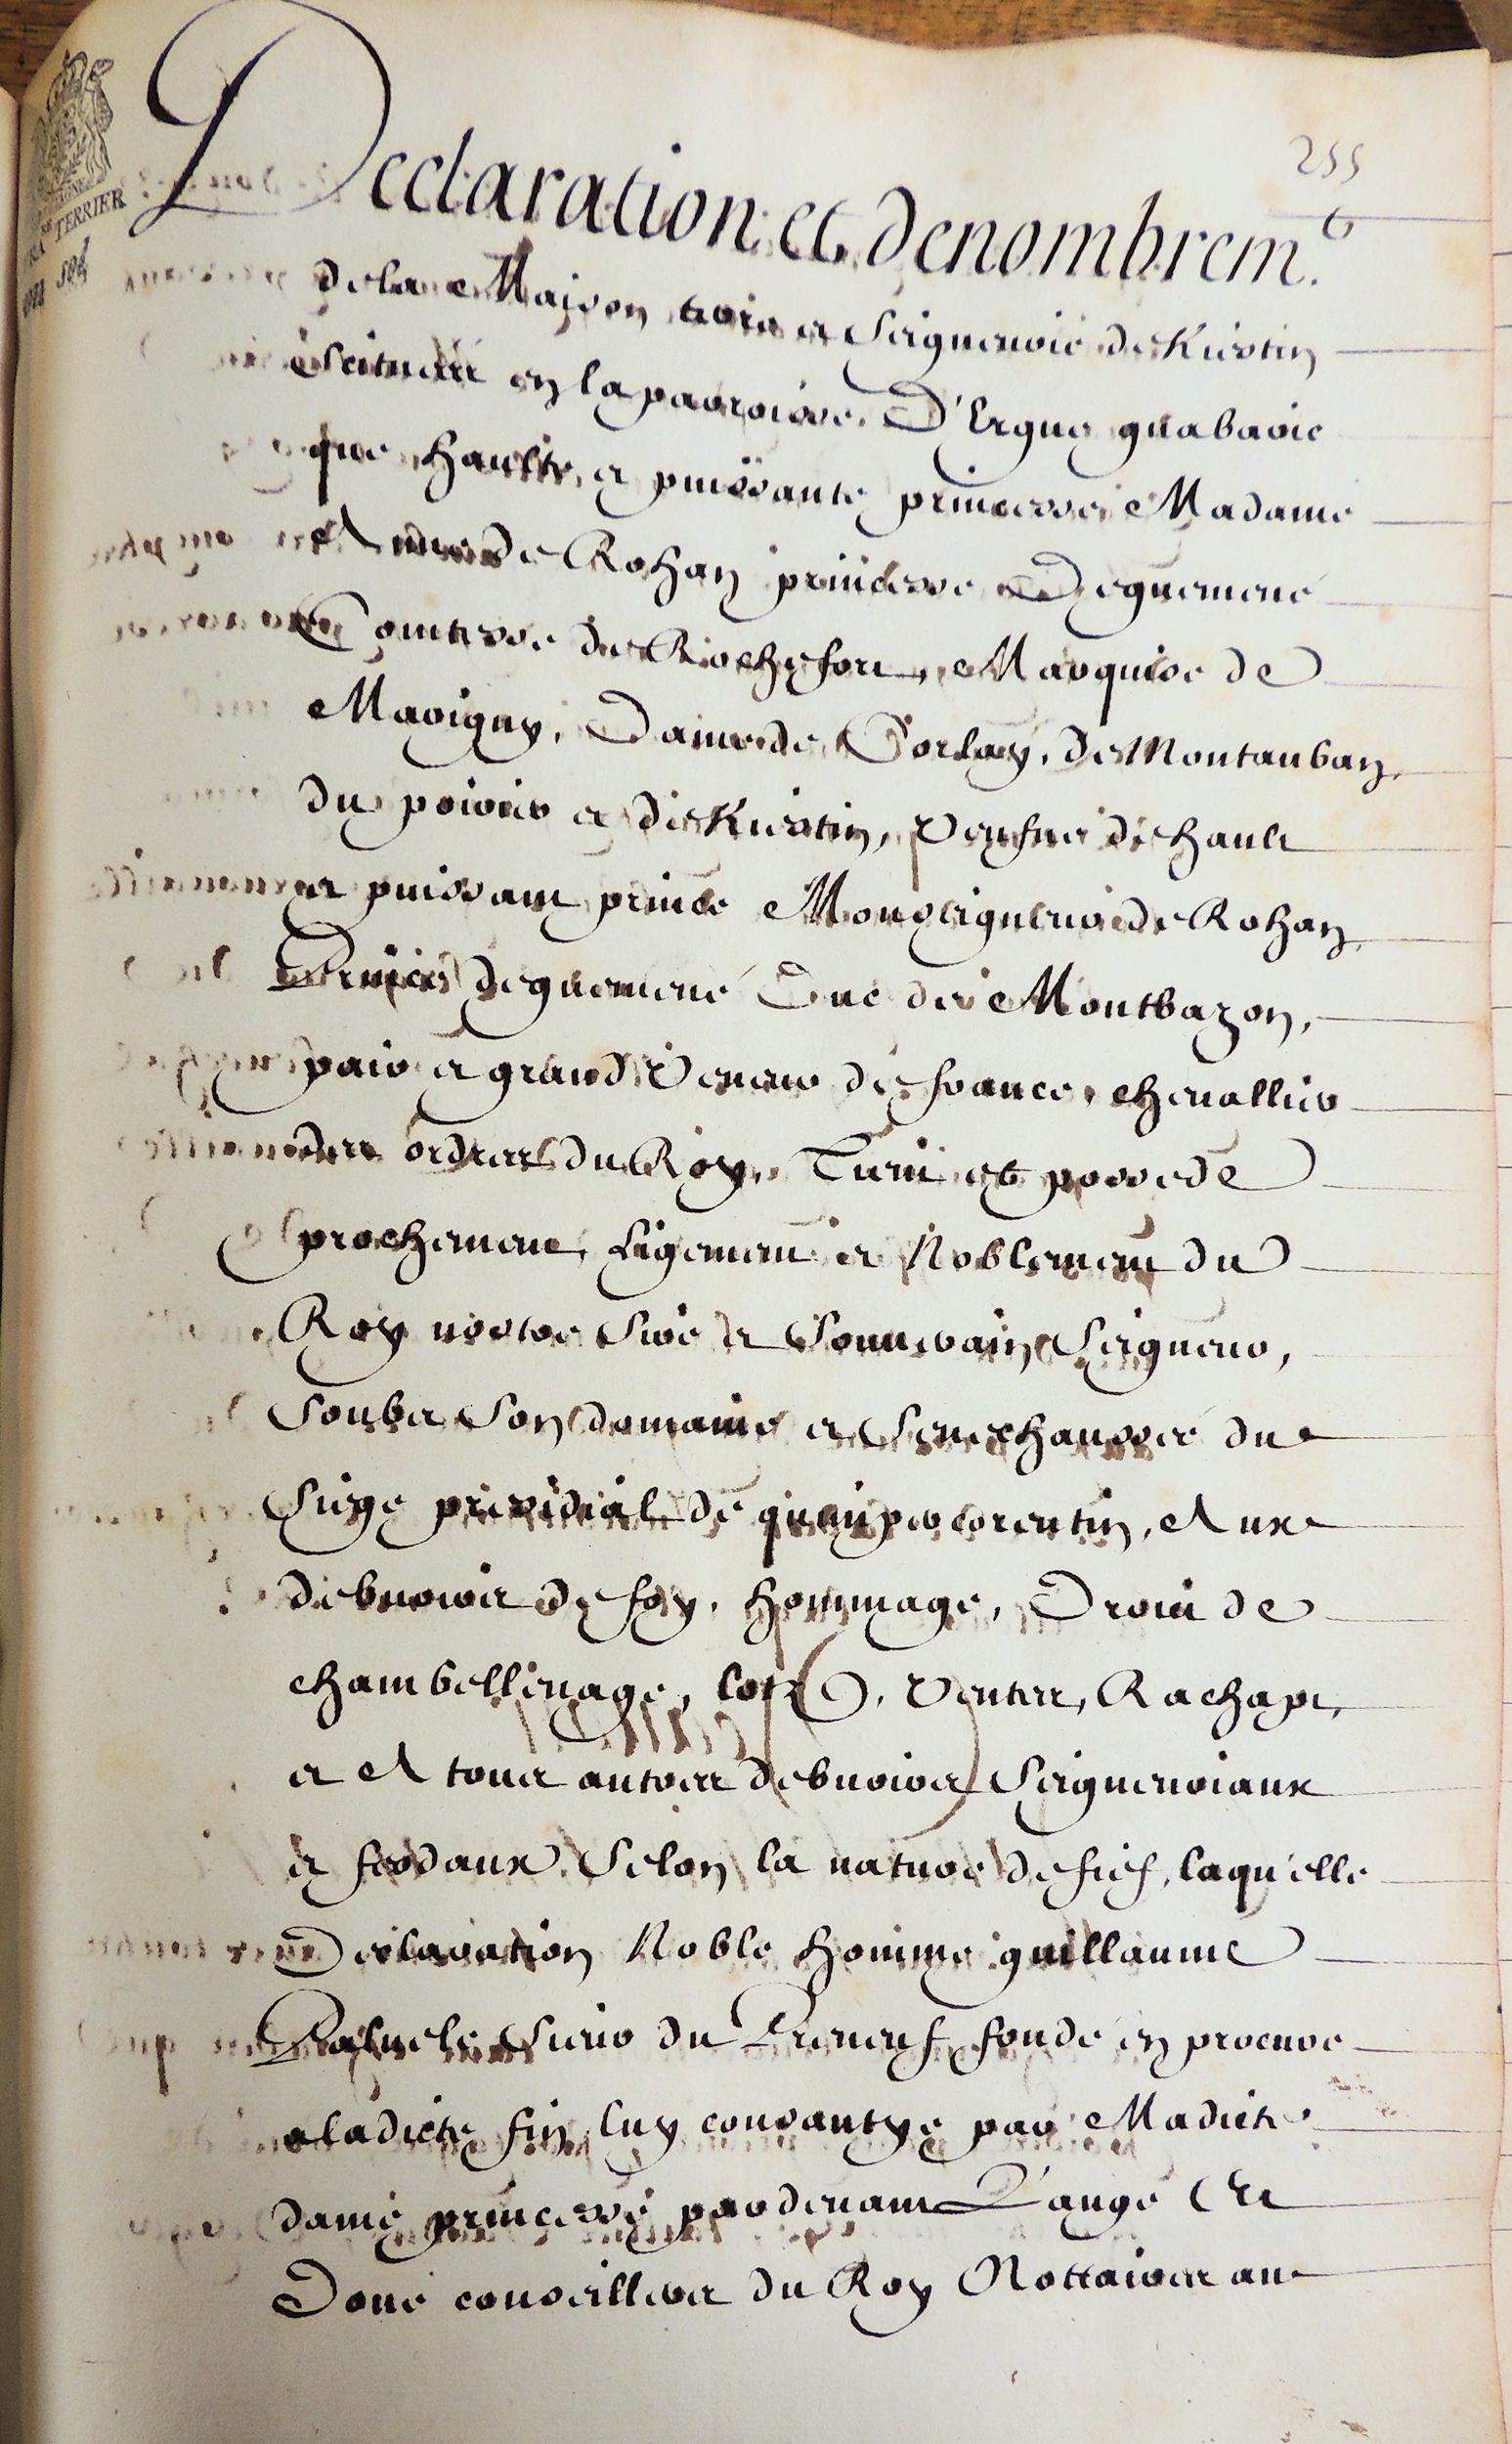 255
TERRIER
Declaration et denombrem.t
de la Maison terre et Seigneurie de Kerstin
Scituée en la parroisse D'Ergue gabaric
que haulte et puissante princesse Madame
Anne de Rohan princesse De guemené
Comtesse de Rochefort, Marquise de
Marigny, Dame de Corlay, de Montauban,
du poirier et de Kerstin, veufue de hault
et puissant prince Monseigneur de Rohan
Prince de guemené Duc de Montbazon,
pair et grand Veneur de france, cheuallier
des ordres du Roy, Tient et possede
prochement, Ligement et Noblement du
Roy nostre Sire et Souuerain Seigneur,
Soubz Son domaine et Senechaussée du
Siege presidial de quimper corentin, Aux
debuoirs de foy, hommage, Droit de
chambellenage, lotz, Ventes, Rachapt,
et A tous autres debuoirs Seigneuriaux
et feodaux Selon la nature de fief, laquelle
Declaration Noble homme guillaume
Sieur du fondé en procure
a ladicte fin luy consantye par Madicte
dame princesse par deuant L'angé Et
Doué conseillers du Roy Nottaires au